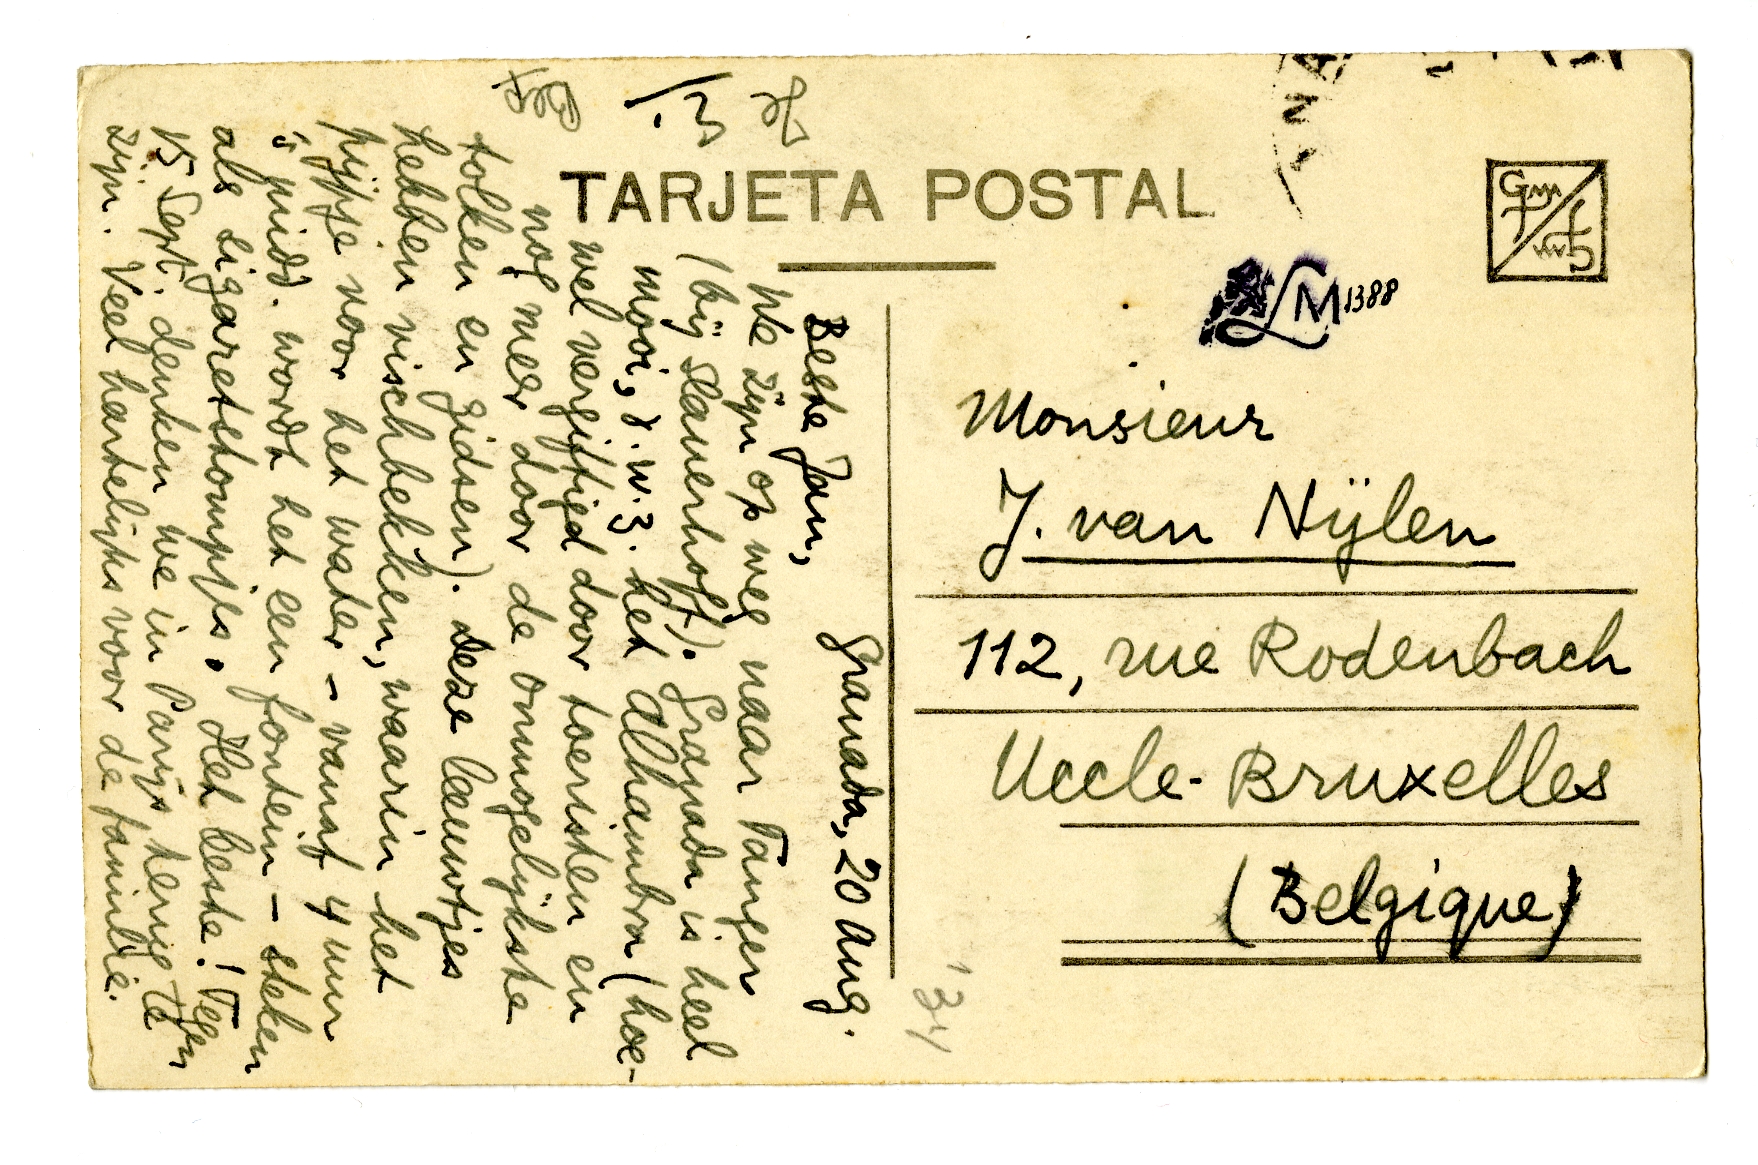 TARJETA POSTAL
LM 1388
Monsieur
J. van Nijlen
112, rue Rodenbach
Uccle-Bruxelles
(Belgique)
'34
Granada, 20 Aug.
Beste Jan,
We zijn op weg naar Tanger
(bij Slauerhoff). Granada is heel
mooi, d.w.z. het Alhambra (hoe-
wel vergiftigd door toeristen en
nog meer door de onmogelijkste
tolken en gidsen). Deze leeuwtjes
hebben vischbekken, waarin het
pijpje voor het water - vanaf 4 uur
's midd. wordt het een fontein - steken
als sigarettestompjes. Het beste! Tegen
15 Sept. denken we in Parijs terug te
zijn. Veel hartelijks voor de familie.
Je E.
Bep